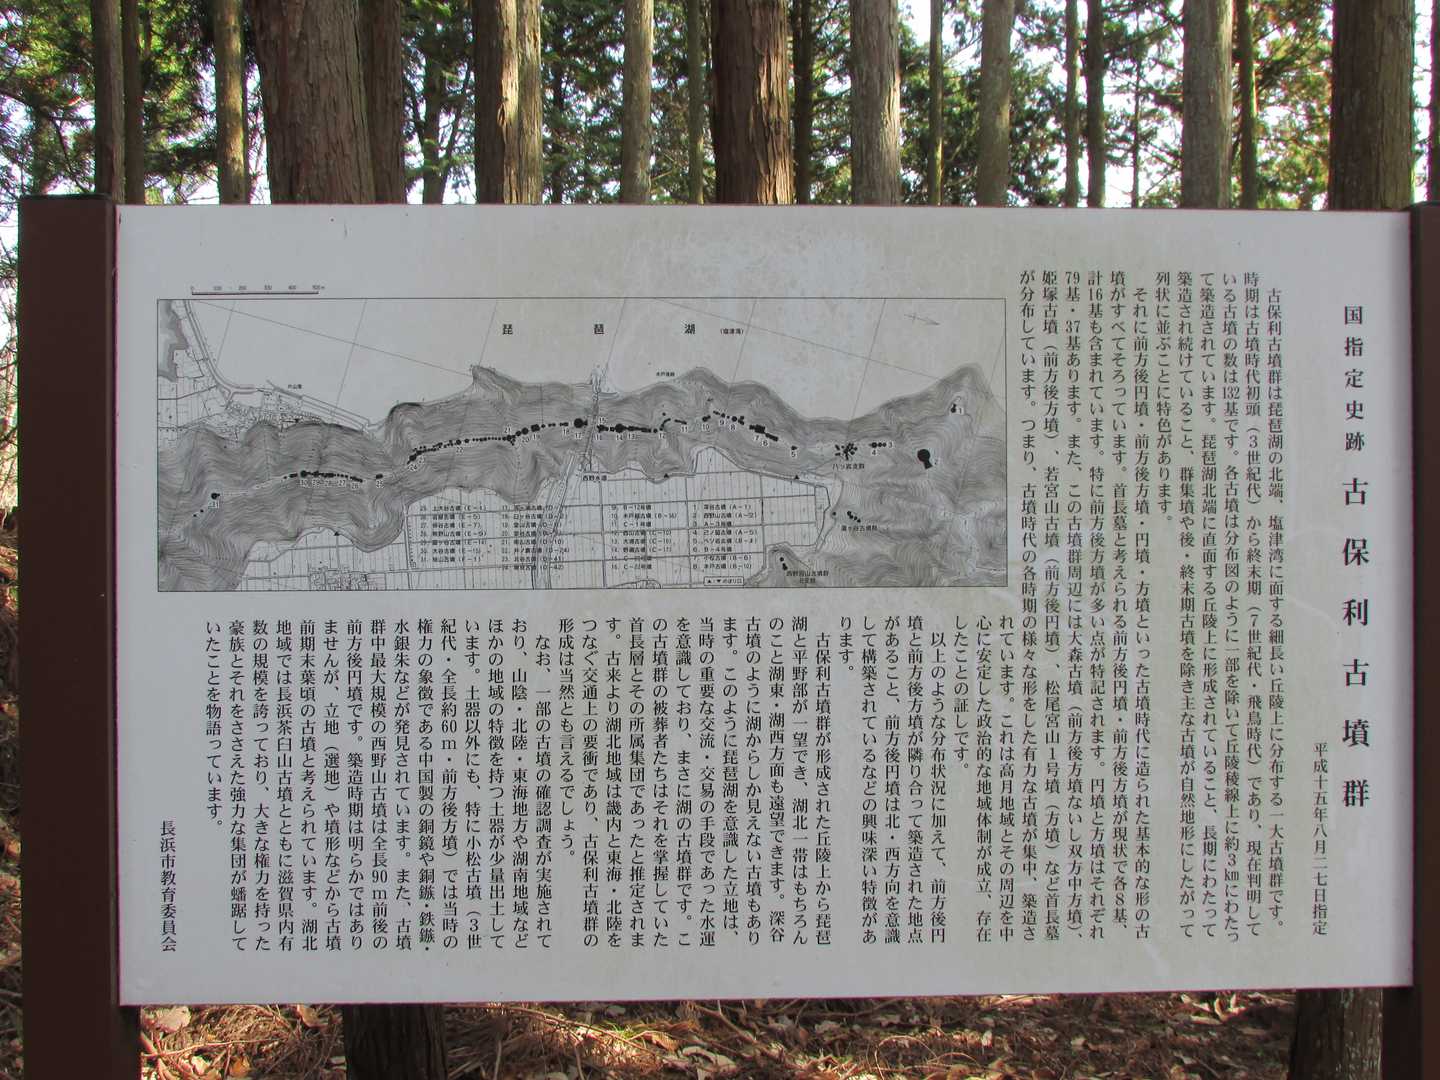 国指定史跡 古保利古墳群
平成十五年八月二七日指定
古保利古墳群は琵琶湖の北端、塩津湾に面する細長い丘陵上に分布する一大古墳群です。
時期は古墳時代初頭(3世紀代)から終末期(7世紀代・飛鳥時代)であり、現在判明して
いる古墳の数は132基です。各古墳は分布図のように一部を除いて丘陵稜線上に約3㎞にわたっ
て築造されています。琵琶湖北端に直面する丘陵上に形成されていること、長期にわたって
築造され続けていること、群集墳や後・終末期古墳を除き主な古墳が自然地形にしたがって
列状に並ぶことに特色があります。
それに前方後円墳・前方後方墳・円墳・方墳といった古墳時代に造られた基本的な形の古
墳がすべてそろっています。首長墓と考えられる前方後円墳・前方後方墳が現状で各8基、
計16基も含まれています。特に前方後方墳が多い点が特記されます。円墳と方墳はそれぞれ
79基・37基あります。また、この古墳群周辺には大森古墳(前方後方墳ないし双方中方墳)、
姫塚古墳(前方後方墳)、若宮山古墳(前方後円墳)、松尾宮山1号墳(方墳)など首長墓
が分布しています。つまり、古墳時代の各時期の様々な形をした有力な古墳が集中、築造さ
れています。これは高月地域とその周辺を中
心に安定した政治的な地域体制が成立、存在
したことの証しです。
以上のような分布状況に加えて、前方後円
墳と前方後方墳が隣り合って築造された地点
があること、前方後円墳は北・西方向を意識
して構築されているなどの興味深い特徴があ
ります。
古保利古墳群が形成された丘陵上から琵琶
湖と平野部が一望でき、湖北一帯はもちろん
のこと湖東・湖西方面も遠望できます。深谷
古墳のように湖からしか見えない古墳もあり
ます。このように琵琶湖を意識した立地は、
当時の重要な交流・交易の手段であった水運
を意識しており、まさに湖の古墳群です。こ
の古墳群の被葬者たちはそれを掌握していた
首長層とその所属集団であったと推定されま
す。古来より湖北地域は畿内と東海・北陸を
つなぐ交通上の要衝であり、古保利古墳群の
形成は当然とも言えるでしょう。
なお、一部の古墳の確認調査が実施されて
おり、山陰・北陸・東海地方や湖南地域など
ほかの地域の特徴を持つ土器が少量出土して
います。土器以外にも、特に小松古墳(3世
紀代・全長約60m・前方後方墳)では当時の
権力の象徴である中国製の銅鏡や銅鏃・鉄鏃・
水銀朱などが発見されています。また、古墳
群中最大規模の西野山古墳は全長90m前後の
前方後円墳です。築造時期は明らかではあり
ませんが、立地(選地)や墳形などから古墳
前期末葉頃の古墳と考えられています。湖北
地域では長浜茶臼山古墳とともに滋賀県内有
数の規模を誇っており、大きな権力を持った
豪族とそれをささえた強力な集団が蟠踞して
いたことを物語っています。
長浜市教育委員会
琵琶湖(塩津湾)
片山港
西野水道
八ッ岩支群